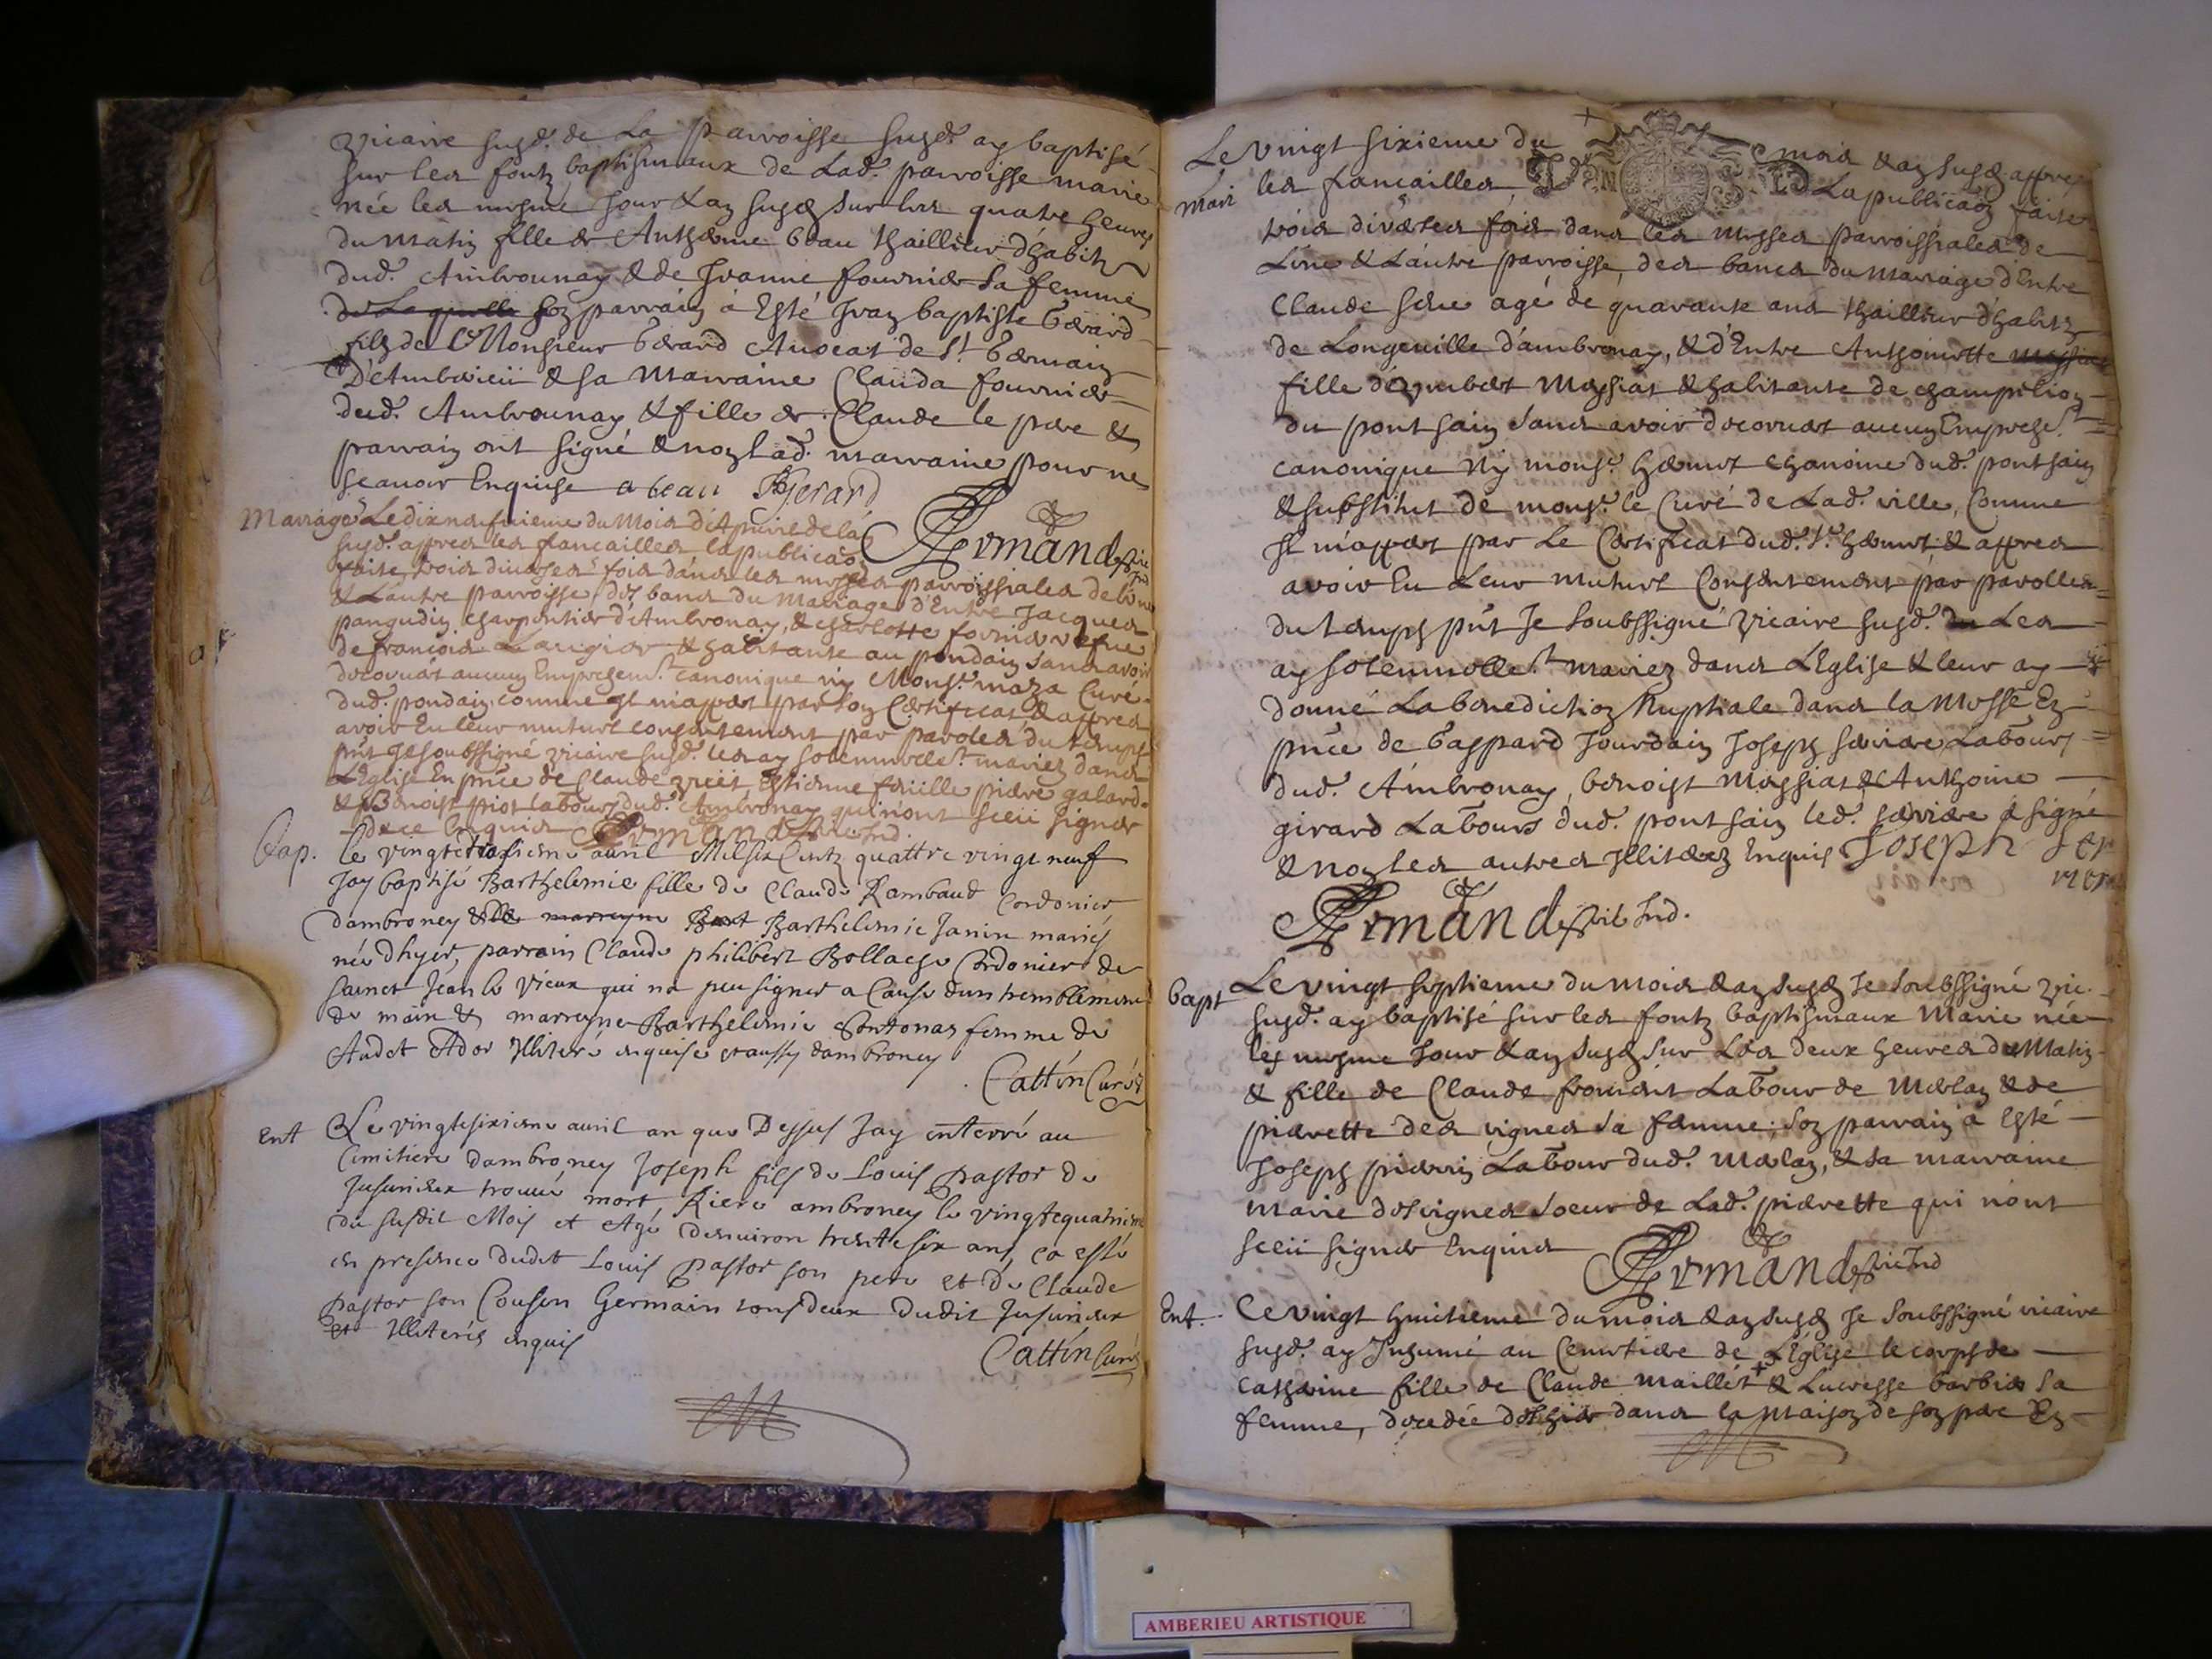 vicaire susd. de La parroisse susd. ay baptisé
sur les fontz baptismaux de Lad. parroisse marie
née les mesme Jour & an susd. sur les quatre heures
du matin fille de Antheme beau thailleur d'habitz
dud. Ambrounay & de Jeanne fournier sa femme
de Laquelle son parrain à Esté Jean baptiste Gerard
filz de Monsieur Gerard Avocat de St. Germain
D'Amberieü & sa marraine Clauda fournier
dud. Ambrounay & fille de Claude le pere &
parrain ont signé & non lad. marraine pour ne
scavoir Enquise a beau JBgerard
Mariage Le dixneufvieme du Mois d'Apvril de l'an
Armand vic. Ind.
susd. appres les fiancailles la publicaon
faite trois diverses fois dans les messes parroissiales de l'une
& L'autre parroisse, des bans du Mariage d'Entre Jacques
pangudin charpentier d'Ambronay, & charlotte fornier vefve
de francois & habitante au pondain sans avoir
decouvert aucun Empeschemt. canonique ny Monsr. maza Curé
dud. pondain, comme Il m'appert par son Certificat & appres
avoir Eu leur mutuel consentement par paroles du temps
pnt Je soubssigné vicaire susd. les ay solemnellemt. mariez dans
L'Eglise En pnce de Claude Estienne pierre galard
& Benoist piot Labours dud. Ambronay qui n'ont sceü signer
de ce Enquis Armand vic. Ind.
Bap. le vingtetroisiesme auril Mil six Centz quattre vingt neuf
Jay baptisé Barthelemie fille de Claude Rambaud Cordonier
dambroney & de marreyne Bart Barthelemie Janin mariés
née dhyer, parrain Claude philibert Bollache Cordonier de
sainct Jean le Vieux qui na peu signer a Cause dun tremblement
de main & marreyne Barthelemie femme de
Audet Ador Illiteré enquise et aussy dambroney
Cattin Curé
Ent Le vingtesixiesme auril an que Dessus Jay enterré au
Cimitiere dambroney Joseph fils de Louis Pastor de
Jusurieux trouué mort Riere ambroney le vingtequatriesme
du susdit Mois et Agé denuiron trente six ans, ça esté
en presence dudit Louis Pastor son pere et de Claude
Pastor son Cousin Germain tous deux dudit Jusurieux
et Illiterés enquis
Cattin Curé
Le vingt sixieme du mois & an susd. appres
Mari les fiancailles La publicaon faite
trois diverses fois dans les messes parroissiales de
L'une & L'autre parroisse, des bancs du Mariage d'Entre
Claude agé de quarante ans thailleur d'habitz
de Longeville d'ambronay, & d'Entre Anthoinette messiat
fille d'Ymbert Messiat & habitante de champelion
du pont sain sans avoir decouvert aucun Empeschet.
canonique Ny monsr. chanoine dud. pont sain
& substitut de monsr. le Curé de Lad. ville, Comme
Il m'appert par Le Certificat dud. Sr. & appres
avoir Eu Leur mutuel Consentement par parolles
du temps pnt Je Soubssigné vicaire susd. Les
ay solemnellet. mariez dans L'Eglise & leur ay
donné La benediction Nuptiale dans la Messe En
pnce de Gaspard Jourdain Joseph Labours
dud. Ambronay, benoist Messiat & Anthoine
girard Labours dud. pont sain led. à signé
& non les autres Illiterez Enquis Joseph
Armand vic Ind.
Bapt Le vingt septieme du mois & an susd. Je Soubssigné vic.
susd. ay baptisé sur les fontz baptismaux Marie née
les mesme Jour & an susd. sur Les deux heures du Matin
& fille de Claude froment Labour de Merlan & de
pierrette des vignes sa femme; son parrain à Esté
Joseph Labour dud. Merlan, & sa marraine
Marie desvignes soeur de Lad. pierrette qui n'ont
sceü signer Enquis Armand vic Ind
Ent. Le vingt huitieme du mois & an susd. Je Soubssigné vicaire
susd. ay Inhumé au Cemetiere de L'Eglise le corps de
catherine fille de Claude maillet & Lucresse barbier sa
femme, decedée d'hier dans la Maison de son pere En
AMBERIEU ARTISTIQUE